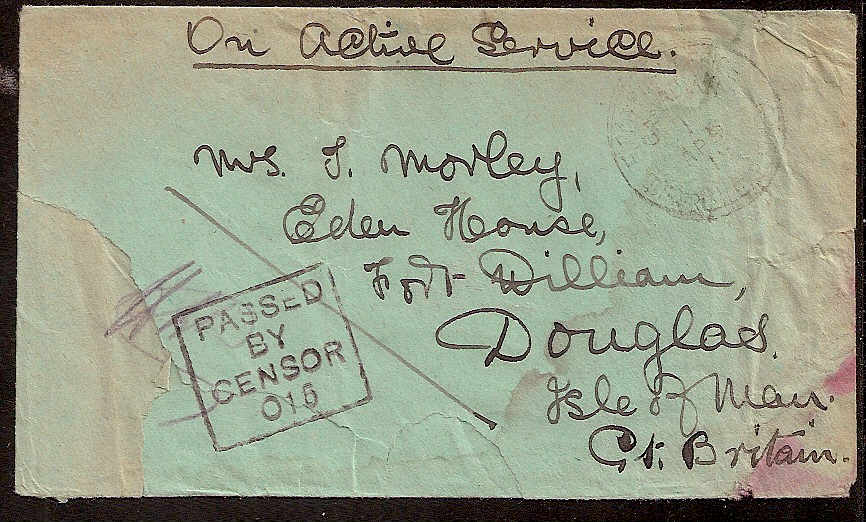 On Active Service.
Mrs. J. Morley,
Eden House,
Fort William,
Douglas.
Isle of Man.
Gt. Britain.
PASSED
BY
CENSOR
015